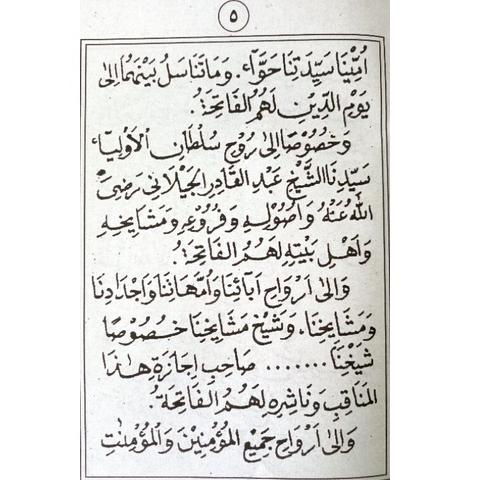 ٥
اُمِّنَا سَيِّدَتِنَا حَوَّاءَ. وَمَا تَنَاسَلَ بَيْنَهُمَا اِلىٰ
يَوْمِ الدِّيْنِ لَهُمُ الفَاتِحَةُ.
وَخُصُوْصًا اِلىٰ رُوْحِ سُلْطَانِ الاَوْلِيَاءِ
سَيِّدِنَا الشَّيْخِ عَبْدِ القَادِرِ الجَيْلَانِى رَضِىَ
اللّٰهُ عَنْهُ وَاُصُوْلِهِ وَفُرُوْعِهِ وَمَشَايِخِهِ
وَاَهْلِ بَيْتِهِ لَهُمُ الفَاتِحَةُ.
وَاِلىٰ اَرْوَاحِ اٰبَآئِنَا وَاُمَّهَاتِنَا وَاَجْدَادِنَا
وَمَشَايِخِنَا. وَشَيْخِ مَشَايِخِنَا خُصُوْصًا
شَيْخَنَا ....... صَاحِبِ اِجَازَةِ هٰذَا
المَنَاقِبِ وَنَاشِرِهِ لَهُمُ الفَاتِحَةُ.
وَاِلىٰ اَرْوَاحِ جَمِيْعِ المُؤْمِنِيْنَ وَالمُؤْمِنٰتِ